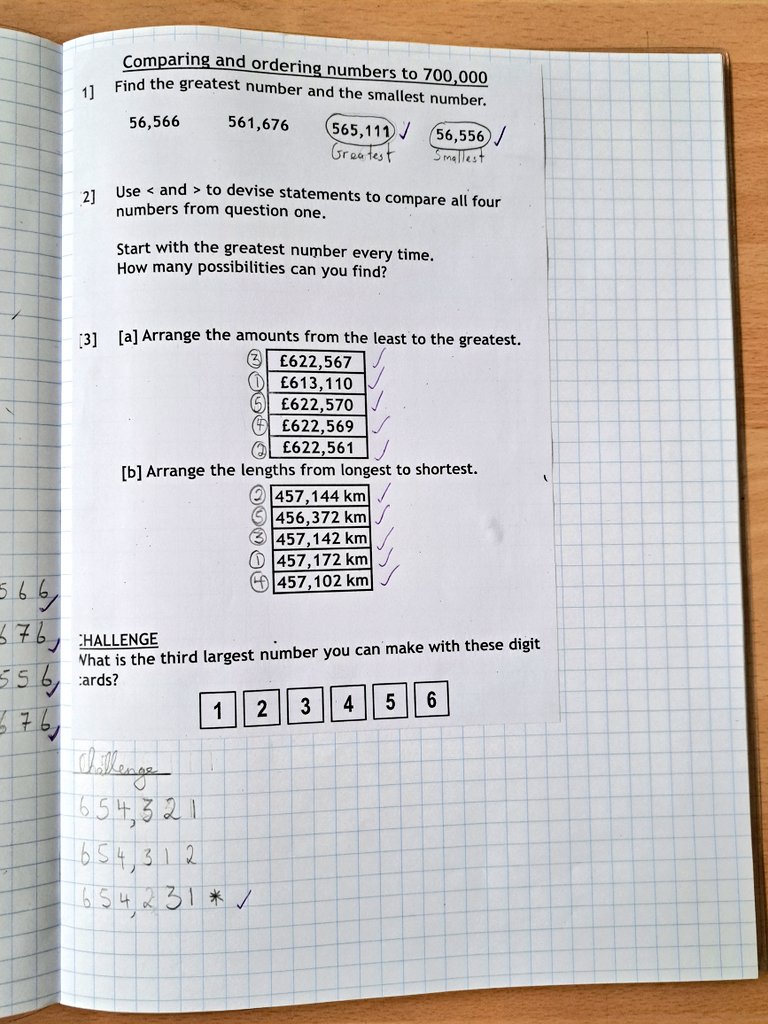 Comparing and ordering numbers to 700,000
1] Find the greatest number and the smallest number.
56,566 561,676 565,111 56,556
Greatest Smallest
2] Use < and > to devise statements to compare all four
numbers from question one.
Start with the greatest number every time.
How many possibilities can you find?
[3] [a] Arrange the amounts from the least to the greatest.
3 £622,567
1 £613,110
5 £622,570
4 £622,569
2 £622,561
[b] Arrange the lengths from longest to shortest.
2 457,144 km
5 456,372 km
3 457,142 km
1 457,172 km
4 457,102 km
566
676
556
676
CHALLENGE
What is the third largest number you can make with these digit
cards?
1 2 3 4 5 6
Challenge
654,321
654,312
654,231 *